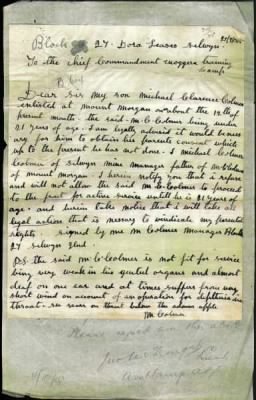 Block 27. Dora Leases Selwyn.
To the chief Commandment Enoggera training
camp
Dear Sir My son Michael Clarence Colmer
enlisted at mount Morgan on about the 12th of
present month. the said M C Colmer being under
21 years of age. I am legally advised it would be necess
ary for him to obtain his parents consent which
up to the present he has not done. I Michael Colmer
of Selwyn mine manager father of
of mount Morgan. I herein notify you that I refuse
and will not allow the said M C Colmer to proceed
to the front for active service untill he is 21 years of
age. and herein take notice that I will take all
legal action that is necessary to vindicate my parental
rights signed by me M Colmer Manager Block
27 Selwyn Qld.
P.S. the said M C Colmer is not fit for service
being very weak in his genital organs and almost
deaf on one ear and at times suffers from very
short wind on account of an operation for diptheria in
throat. see scar on throat below the adam apple
M Colmer
Please report on the above